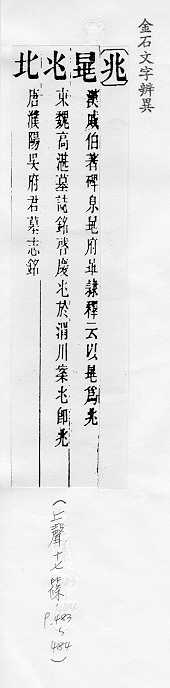 金石文字辨異
兆 晁 兆 北
漢戚伯著碑京晁府丞隸釋云以晁爲兆
東魏高湛墓誌銘啓慶兆於渭川案兆即兆
唐濮陽吳府君墓志銘
(上聲十七篠 P.483~484)